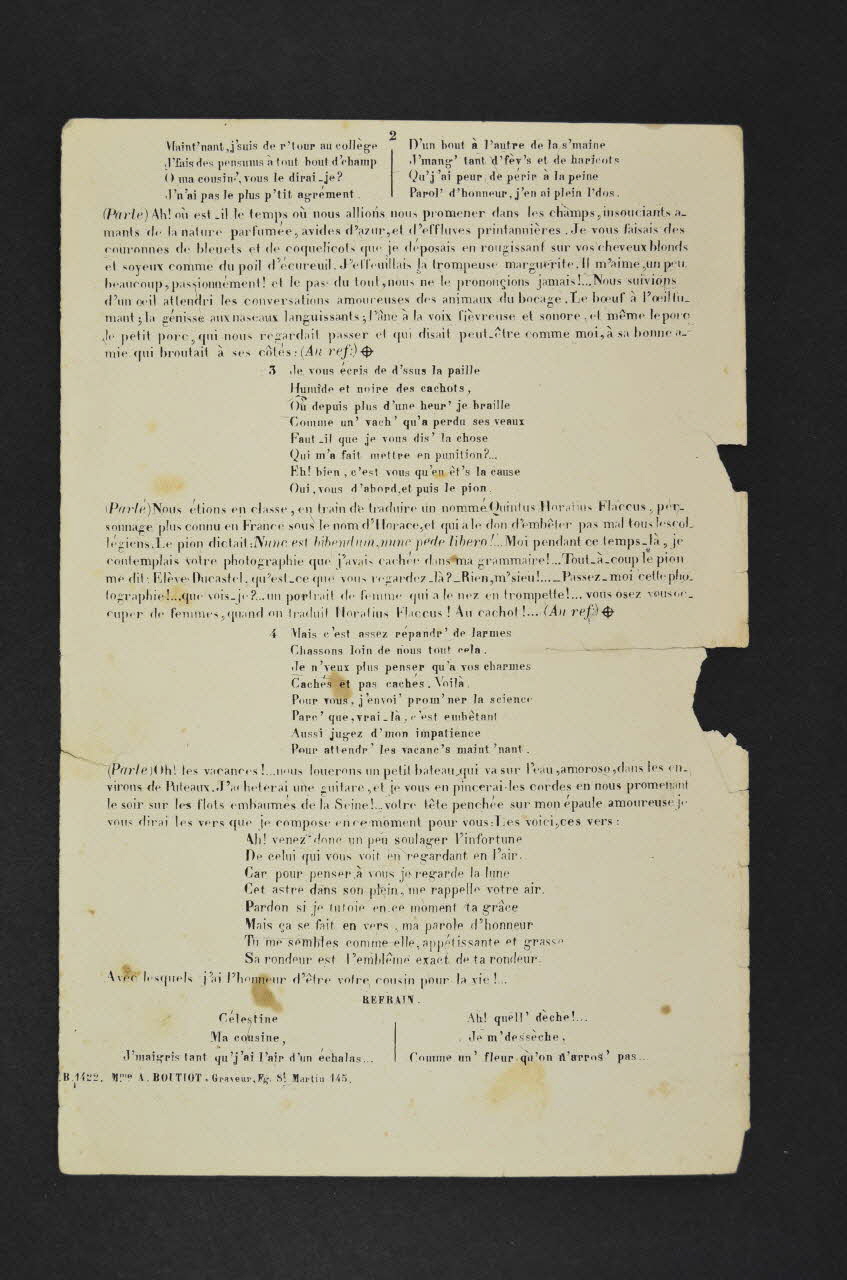 2
Maint'nant, j'suis de r'tour au collège
J'fais des pensums à tout bout d'champ
O ma cousin', vous le dirai-je?
J'n'ai pas le plus p'tit agrément.
D'un bout à l'autre de la s'maine
J'mang' tant d'fèv's et de haricots
Qu'j'ai peur de périr à la peine
Parol' d'honneur, j'en ai plein l'dos.
(Parlé) Ah! où est-il le temps où nous allions nous promener dans les champs, insouciants a-
mants de la nature parfumée, avides d'azur, et d'effluves printannières. Je vous faisais des
couronnes de bleuets et de coquelicots que je déposais en rougissant sur vos cheveux blonds
et soyeux comme du poil d'écureuil. J'effeuillais la trompeuse marguerite. Il m'aime, un peu,
beaucoup, passionnément! et le pas du tout, nous ne le prononçions jamais!... Nous suivions
d'un œil attendri les conversations amoureuses des animaux du bocage. Le bœuf à l'œil fu-
mant; la génisse aux naseaux languissants; l'âne à la voix fièvreuse et sonore, et même le porc
le petit porc, qui nous regardait passer et qui disait peut-être comme moi, à sa bonne a-
mie qui broutait à ses côtés: (Au ref:) ⌖
3 Je vous écris de d'ssus la paille
Humide et noire des cachots,
Où depuis plus d'une heur' je braille
Comme un' vach' qu'a perdu ses veaux
Faut-il que je vous dis' la chose
Qui m'a fait mettre en punition?...
Eh! bien, c'est vous qu'en êt's la cause
Oui, vous d'abord, et puis le pion.
(Parlé) Nous étions en classe, en train de traduire un nommé Quintus Horatius Flaccus, per-
sonnage plus connu en France sous le nom d'Horace, et qui a le don d'embêter pas mal tous les col-
légiens. Le pion dictait: Nunc est bibendum, nunc pede libero!... Moi pendant ce temps-là, je
contemplais votre photographie que j'avais cachée dans ma grammaire!... Tout-à-coup le pion
me dit: Elève Ducastel, qu'est-ce que vous regardez-là?_Rien, m'sieu!...._Passez-moi cette pho-
tographie!...que vois-je?... un portrait de femme qui a le nez en trompette!... vous osez vous oc-
cuper de femmes, quand on traduit Horatius Flaccus! Au cachot!... (Au ref:) ⌖
4 Mais c'est assez répandr' de larmes
Chassons loin de nous tout cela.
Je n'veux plus penser qu'a vos charmes
Cachés et pas cachés. Voilà.
Pour vous, j'envoi' prom'ner la science
Parc' que, vrai-là, c'est embêtant
Aussi jugez d'mon impatience
Pour attendr' les vacanc's maint'nant.
(Parlé) Oh! les vacances!...nous louerons un petit bateau, qui va sur l'eau, amoroso, dans les en-
virons de Puteaux. J'acheterai une guitare, et je vous en pincerai les cordes en nous promenant
le soir sur les flots embaumés de la Seine!...votre tête penchée sur mon épaule amoureuse je
vous dirai les vers que je compose en ce moment pour vous: Les voici, ces vers:
Ah! venez donc un peu soulager l'infortune
De celui qui vous voit en regardant en l'air.
Car pour penser à vous je regarde la lune
Cet astre dans son plein, me rappelle votre air.
Pardon si je tutoie en ce moment ta grâce
Mais ça se fait en vers, ma parole d'honneur
Tu me sembles comme elle, appétissante et grasse
Sa rondeur est l'emblême exact de ta rondeur.
Avec lesquels j'ai l'honneur d'être votre cousin pour la vie!...
REFRAIN.
Célestine
Ma cousine,
J'maigris tant qu'j'ai l'air d'un échalas...
Ah! quell' dèche!...
Je m'dessèche,
Comme un' fleur qu'on n'arros' pas...
B. 1422. Mme A. BOUTIOT, Graveur, Fg. St Martin 145.